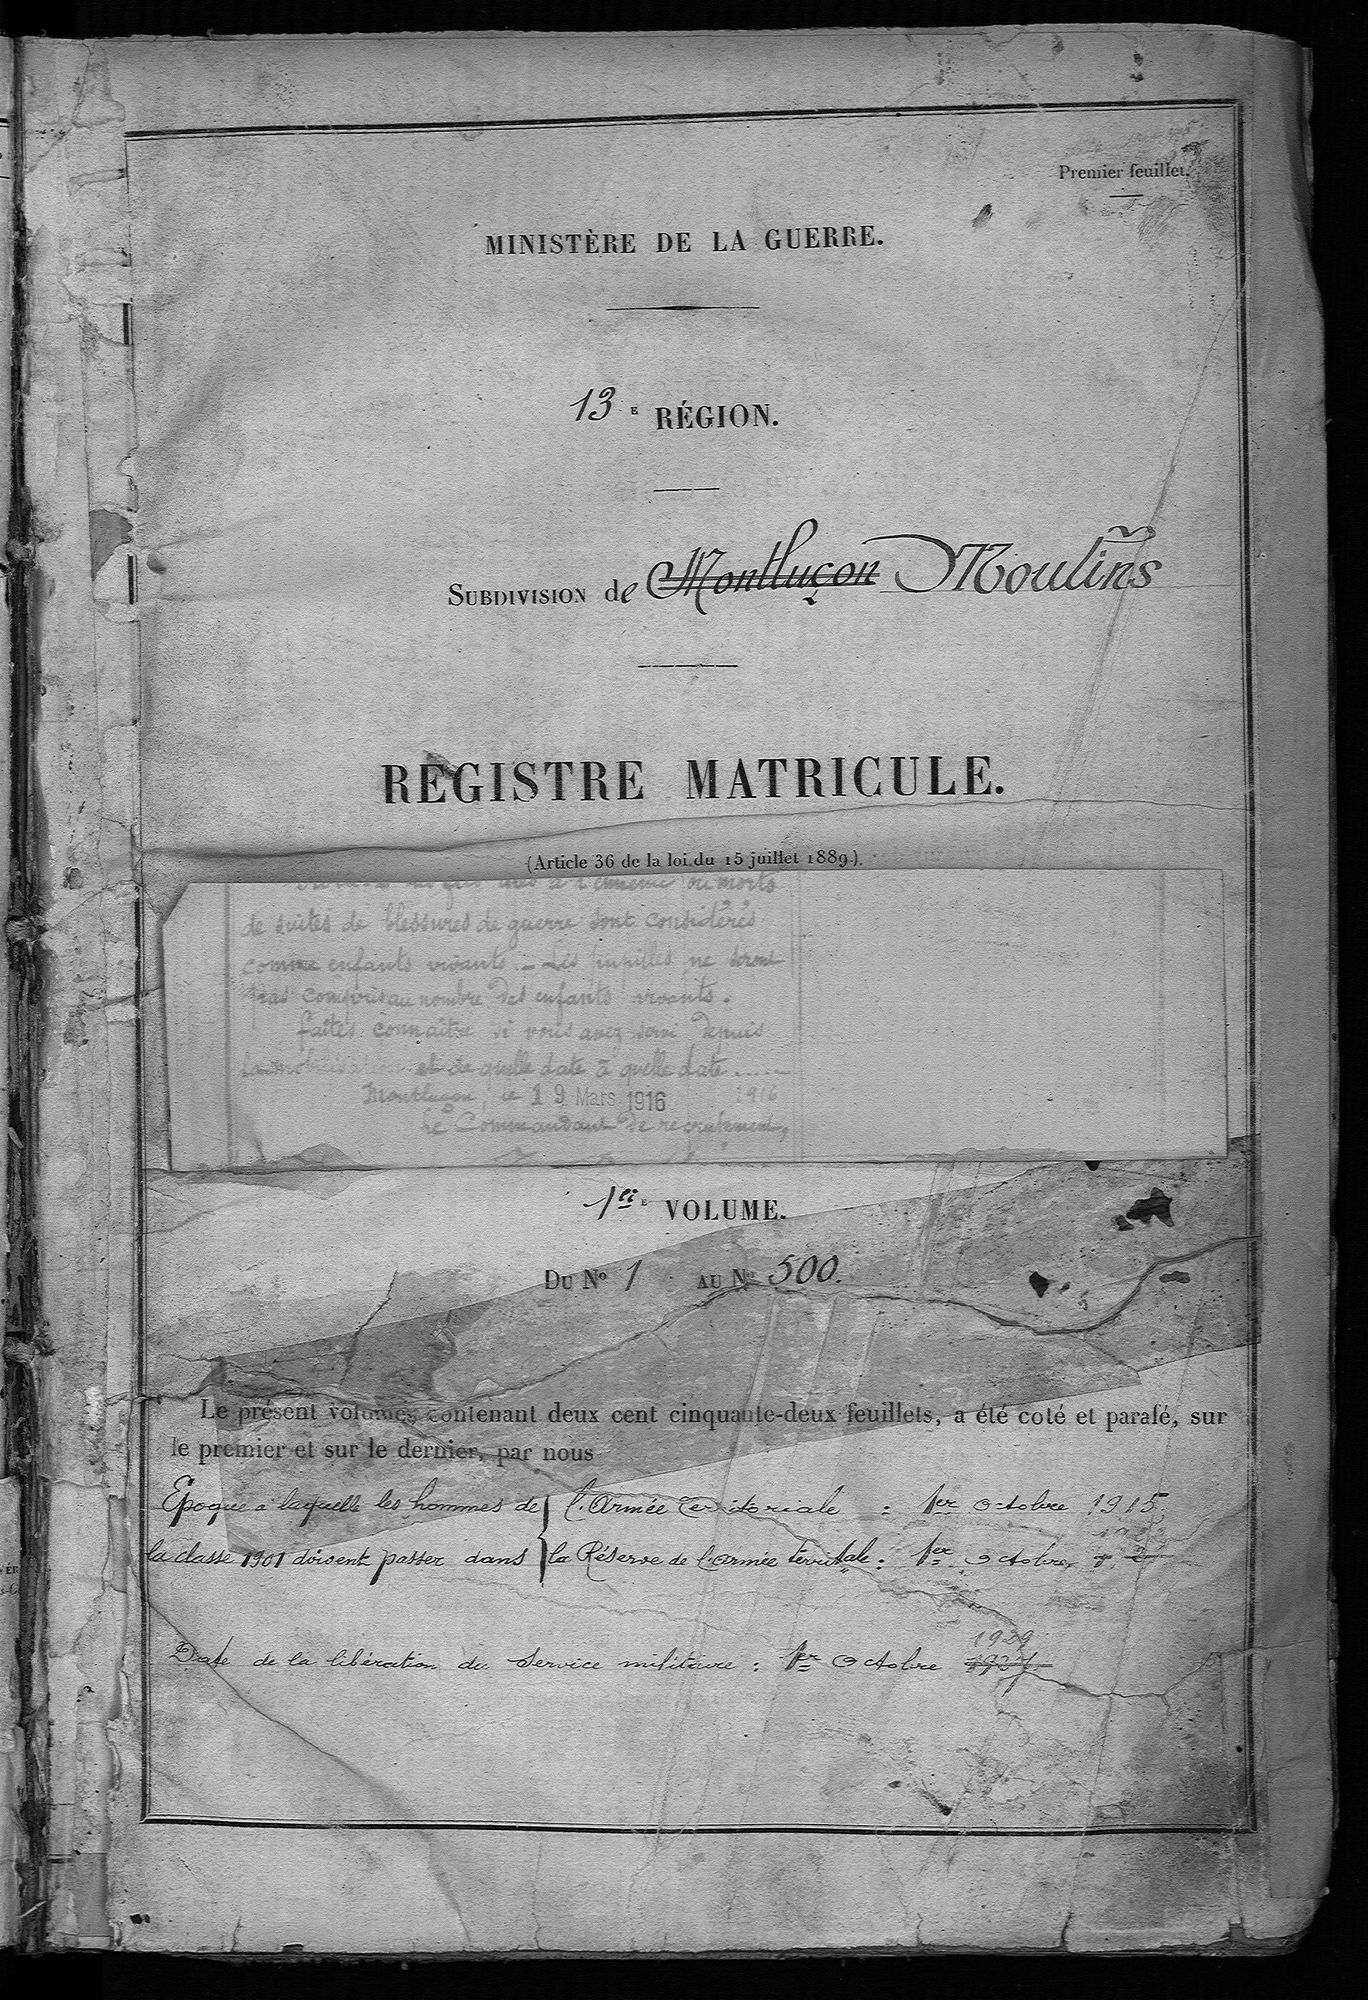 Premier feuillet.
MINISTÈRE DE LA GUERRE.
13 E RÉGION.
SUBDIVISION de Montluçon Moulins
REGISTRE MATRICULE.
(Article 36 de la loi du 15 juillet 1889.)
à l'ennemi ou morts
de suites de blessures de guerre sont considérés
comme enfants vivants – Les pupilles ne seront
pas compris au nombre des enfants vivants.
faites connaître si vous avez servi depuis
la mobilisation et de quelle date à quelle date .....
Montluçon, le 19 Mars 1916 1916
Le Commandant de recrutement,
1er E VOLUME.
DU No 1 AU No 500.
Le présent volume, contenant deux cent cinquante-deux feuillets, a été coté et parafé, sur
le premier et sur le dernier, par nous
Epoque à laquelle les hommes de { l'Armée Territoriale : 1er octobre 1915
la classe 1901 doivent passer dans { la Réserve de l'armée territale : 1er octobre
1929
Date de la libération du service militaire : 1er Octobre 1927